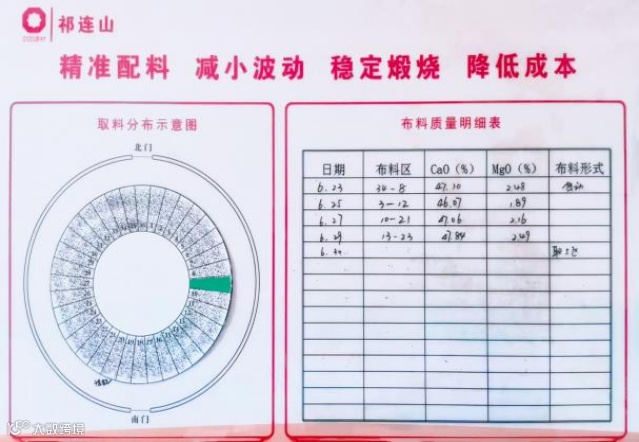 祁连山
精准配料 减小波动 稳定煅烧 降低成本
取料分布示意图
北门
南门
布料质量明细表
日期 布料区 CaO（%） MgO（%） 布料形式
6.23 34-8 47.10 2.48
6.25 3-12 46.07 1.89
6.27 10-21 47.06 2.16
6.29 13-23 47.84 2.49
6.30
大数跨境